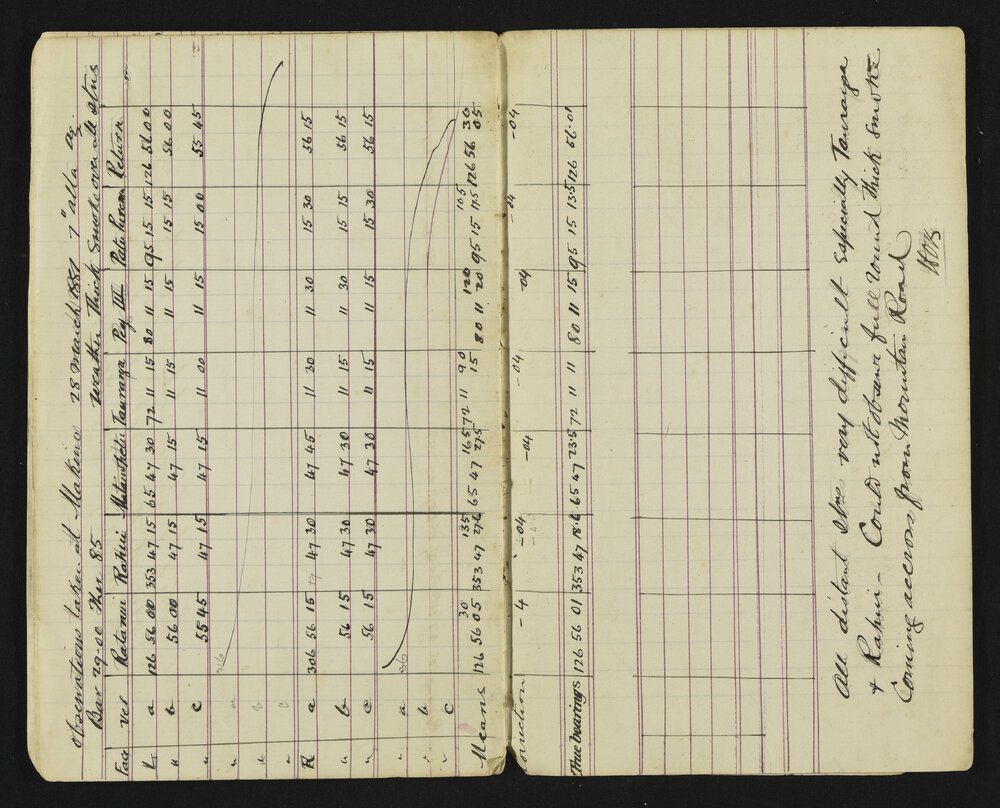 Observations taken at Makino 28 March 1881 7" alta az.
Bar 29.00 Ther 85 Weather Thick Smoke over all stns
Face Ver Ratanui Rahui Mataimoti Tauranga Peg III Return
L a 126 56 00 353 47 15 65 47 30 72 11 15 80 11 15 95 15 15 126 56 00
" b 56 00 47 15 47 15 11 15 11 15 15 15 56 00
" c 55 45 47 15 47 15 11 00 11 15 15 00 55 45
" a 306
" b
" c
R a 306 56 15 47 30 47 45 11 30 11 30 15 30 56 15
" b 56 15 47 30 47 30 11 15 11 30 15 15 56 15
" c 56 15 47 30 47 30 11 15 11 15 15 30 56 15
" a 306
" b
" c
30 135 165 90 120 105 30
Means 126 56 05 353 47 65 47 27.5 72 11 15 80 11 20 95 15 17.5 126 56 05
- 4 -04 -04 -04 -04 -04 -04
True bearings 126 56 01 353 47 18.6 65 47 23.5 72 11 11 80 11 15 95 15 13.5 126 56.01
All distant stns very difficult especially Tauranga
+ Rahui - Could not observe full round thick smoke
Coming across from Mountain Road